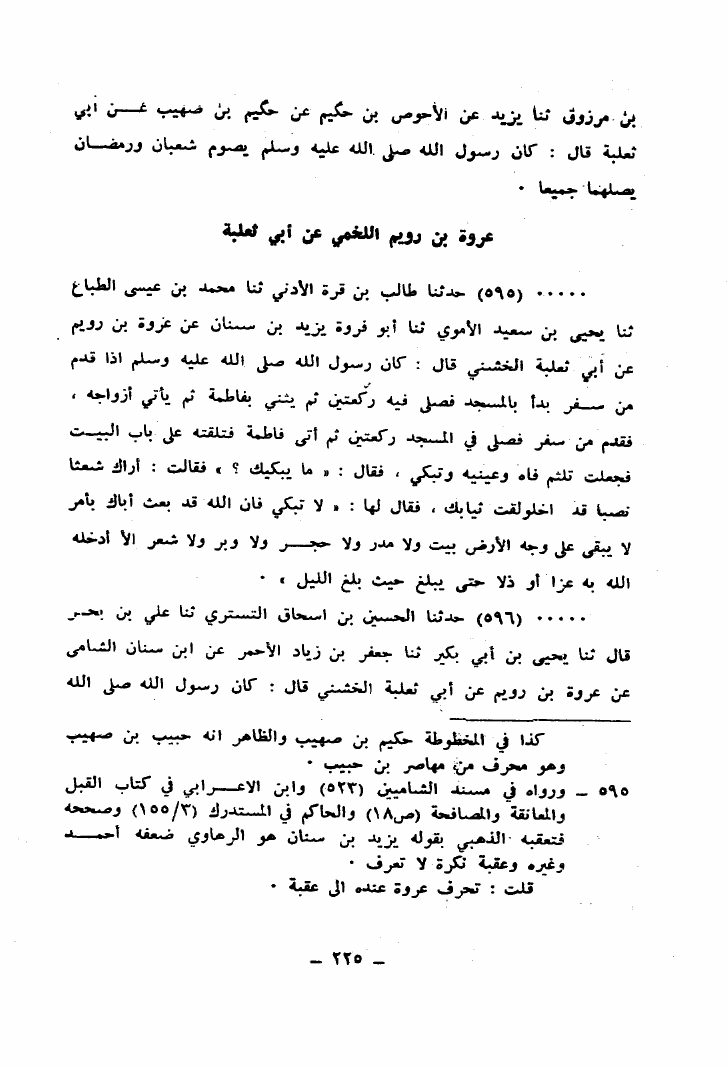 بن مرزوق ثنا يزيد عن الأحوص بن حكيم عن حكيم بن صهيب عـن أبي
ثعلبة قال : كان رسول الله صلى الله عليه وسلم يصوم شعبان ورمضـان
يصلهما جميعا .
عروة بن رويم اللخمي عن أبي ثعلبة
..... (٥٩٥) حدثنا طالب بن قرة الأدني ثنا محمد بن عيسى الطباع
ثنا يحيى بن سعيد الأموي ثنا أبو فروة يزيد بن سنان عن عروة بن رويم
عن أبي ثعلبة الخشني قال : كان رسول الله صلى الله عليه وسلم اذا قدم
من سـفر بدأ بالمسجد فصلى فيه ركعتين ثم يثني بفاطمة ثم يأتي أزواجه ،
فقدم من سفر فصلى في المسجد ركعتين ثم أتى فاطمة فتلقته على باب البيـت
فجعلت تلثم فاه وعينيه وتبكي ، فقال : « ما يبكيك ؟ » فقالت : أراك شعثا
نصبا قد اخلولقت ثيابك ، فقال لها : « لا تبكي فان الله قد بعث أباك بأمر
لا يبقى على وجه الأرض بيت ولا مدر ولا حجـر ولا وبر ولا شعر الأ أدخله
الله به عزا أو ذلا حتى يبلغ حيث بلغ الليل » .
..... (٥٩٦) حدثنا الحسين بن اسحاق التستري ثنا علي بن بحـر
قال ثنا يحيى بن أبي بكير ثنا جعفر بن زياد الأحمر عن ابن سنان الشامى
عن عروة بن رويم عن أبي ثعلبة الخشني قال : كان رسول الله صلى الله
كذا في المخطوطة حكيم بن صهيب والظاهر انه حبيب بن صهيب
وهو محرف من مهاصر بن حبيب .
٥٩٥ ـ ورواه في مسند الشاميين (٥٢٣) وابن الاعـرابي في كتاب القبل
والمعانقة والمصافحة (ص١٨) والحاكم في المستدرك (١٥٥/٣) وصححه
فتعقبه الذهبي بقوله يزيد بن سنان هو الرهاوي ضعفه أحمـد
وغيره وعقبة نكرة لا تعرف .
قلت : تحرف عروة عنده الى عقبة .
ـ ٢٢٥ ـ